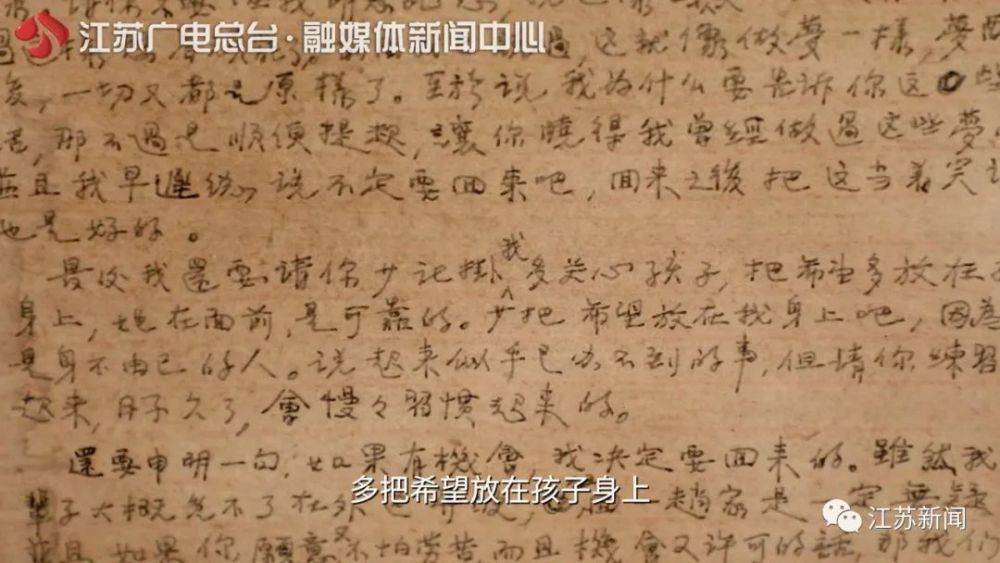 江苏广电总台·融媒体新闻中心
过,这就像做夢一樣,夢
一切又都是原樣了。至於说我为什么要告诉你这些
那不過是順便提起,讓你曉得我曾經做過这些夢。
且我早遲总说不定要回来吧,回来之後把这当着笑
也是好的。
最後我還要請你少记掛我多关心孩子,把希望多放在
身上,现在面前,是可靠的。少把希望放在我身上吧,因為
是身不由己的人。说起来似乎已办不到的事,但請你練習
起来,日子久了,會慢々習慣起来的。
還要申明一句,如果有機會,我决定要回来的。雖然我
輩子大概免不了在外 趙家是一定無疑
并且如果你願意又不怕劳苦,而且機會又许可的話,那我们
多把希望放在孩子身上
江苏新闻